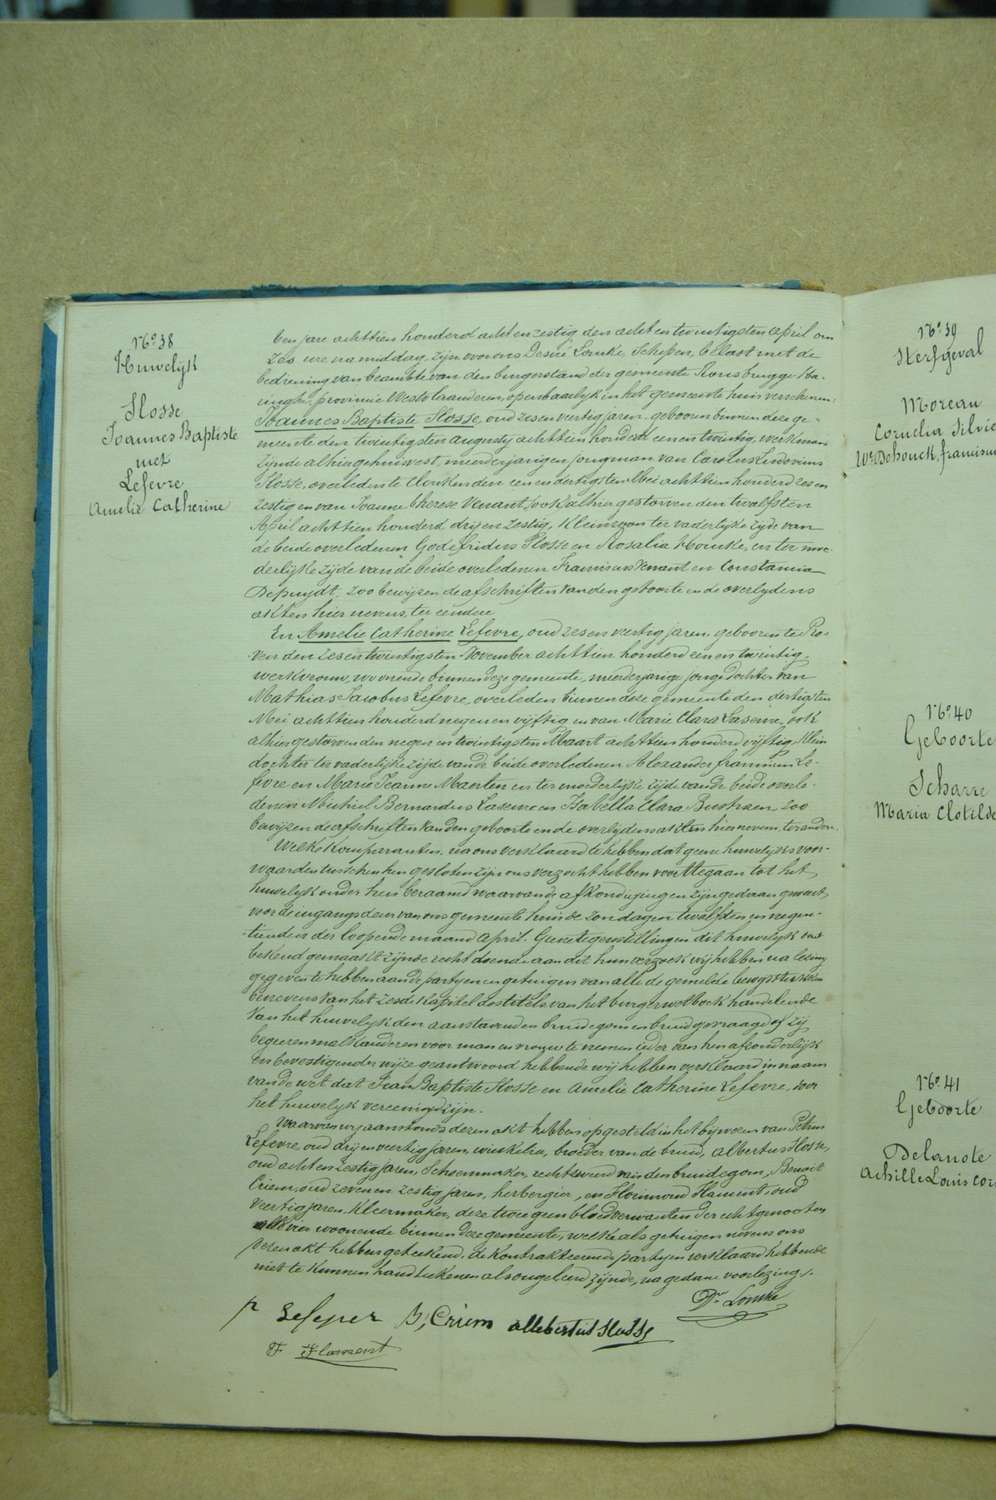 N° 38
Huwelijk
Slosse
Joannes Baptiste
met
Lefevre
Amelie Catherine
ten jare achttien honderd acht en zestig, den acht en twintigsten april om
zes ure namiddag, zijn voor ons Desiré Lonke, Schepen, belast met de
bediening van beambte van den burgerstand der gemeente Rousbrugge Ha-
ringhe, provincie Westvlaanderen, openbaarlijk in het gemeente huis verschenen
Joannes Baptiste Slosse, oud zes en veertig jaren, geboren binnen deze ge-
meente den twintigsten augusty achttien honderd een en twintig, werkman
zijnde alhier gehuisvest, meerderjarigen jongman van Carolus Ludovicus
Slosse, overleden te den een en dertigsten Mei achttien honderd zes en
zestig en van Joanne Therese Venant, ook alhier gestorven den twaalfsten
April achttien honderd dry en zestig, kleinzoon ter vaderlyke zyde van
de beide overledenen Godefridus Slosse en Rosalia en ter moe-
derlijke zijde van de beide overledenen Franciscus Venant en Constantia
Depuydt. zoo bewijzen de afschriften van den geboorte en de overlydens
akten hier nevens, ter eendere
En Amelie Catherine Lefevre, oud zes en veertig jaren, geboren te Pro-
ven den zes en twintigsten November achttien honderd een en twintig,
werkvrouw, woonende binnen deze gemeente, meerderjarige jonge dochter van
Mathias Jacobus Lefevre, overleden binnen deze gemeente den dertigsten
Mei achttien honderd negen en vijftig en van Marie Clara ook
alhier gestorven den negen en twintigsten Maart achttien honderd vijftig, klein
dochter ter vaderlijke zijde van de beide overledenen Alexander francisus Le-
fevre en Marie Jeanne Maerten en ter moederlijke zijde van de beide overle-
denen Michiel Bernardus en Isabella Clara zoo
bewijzen de afschriften van den geboorte en de overlydens akten hier nevens, ter eendere.
Welke komparanten, na ons verklaard te hebben dat geene huwelijks voor-
waarden tusschen hen gesloten zijn ons verzocht hebben voorttegaan tot het
huwelijk onder hen beraamd waarvan de afkondigingen zijn gedaan geweest,
voor de ingangsdeur van ons gemeente huis de zondagen twaalfden en negen-
tienden der loopende maand April. Geene tegenstellingen dit huwelijk ons
bekend gemaakt zijnde recht doende aan dit hun verzoek wij hebben na lezing
gegeven te hebben aan de partyen en getuigen van alle de gemelde bewysstukken
benevens van het zesde kapitel des titels van het burger wetboek handelende
van het huwelijk den aanstaanden bruidegom en bruid gevraagd of zij
begeeren malkanderen voor man en vrouw te nemen ieder van hen afzonderlijk
en bevestigender wijze geantwoord hebbende wij hebben verklaard in naam
van de wet dat Jean Baptiste Slosse en Amelie Catherine Lefevre, door
het huwelijk vereenigd zijn.
Waarvan wij aanstonds dezen akt hebben opgesteld in het bijwezen van Petrus
Lefevre, oud drij en veertig jaren, winkelier, broeder van de bruid, Albertus Slosse,
oud acht en zestig jaren, Schoenmaker, rechtsweerd van den bruidegom, Benoit
Criem, oud zeven en zestig jaren, herbergier, en Florimond Flament, oud
veertig jaren, kleermaker, deze twee geen bloedverwanten der echtgenooten
alle vier woonende binnen deze gemeente, welke als getuigen nevens ons
dezen akt hebben geteekend, de kontrakteerende partyen verklaard hebbende
niet te kunnen handteekenen als ongeleerd zijnde, na gedane voorlezing.
Dé Lonke
P Lefever B, Criem allebertus Slosse
F Flament
N° 39
Sterfgeval
Moreau
Cornelia Silvie
We Dehouck, francisus
N° 40
Geboorte
Scharre
Maria Clotilde
N° 41
Geboorte
Delanote
Achille Louis Cor